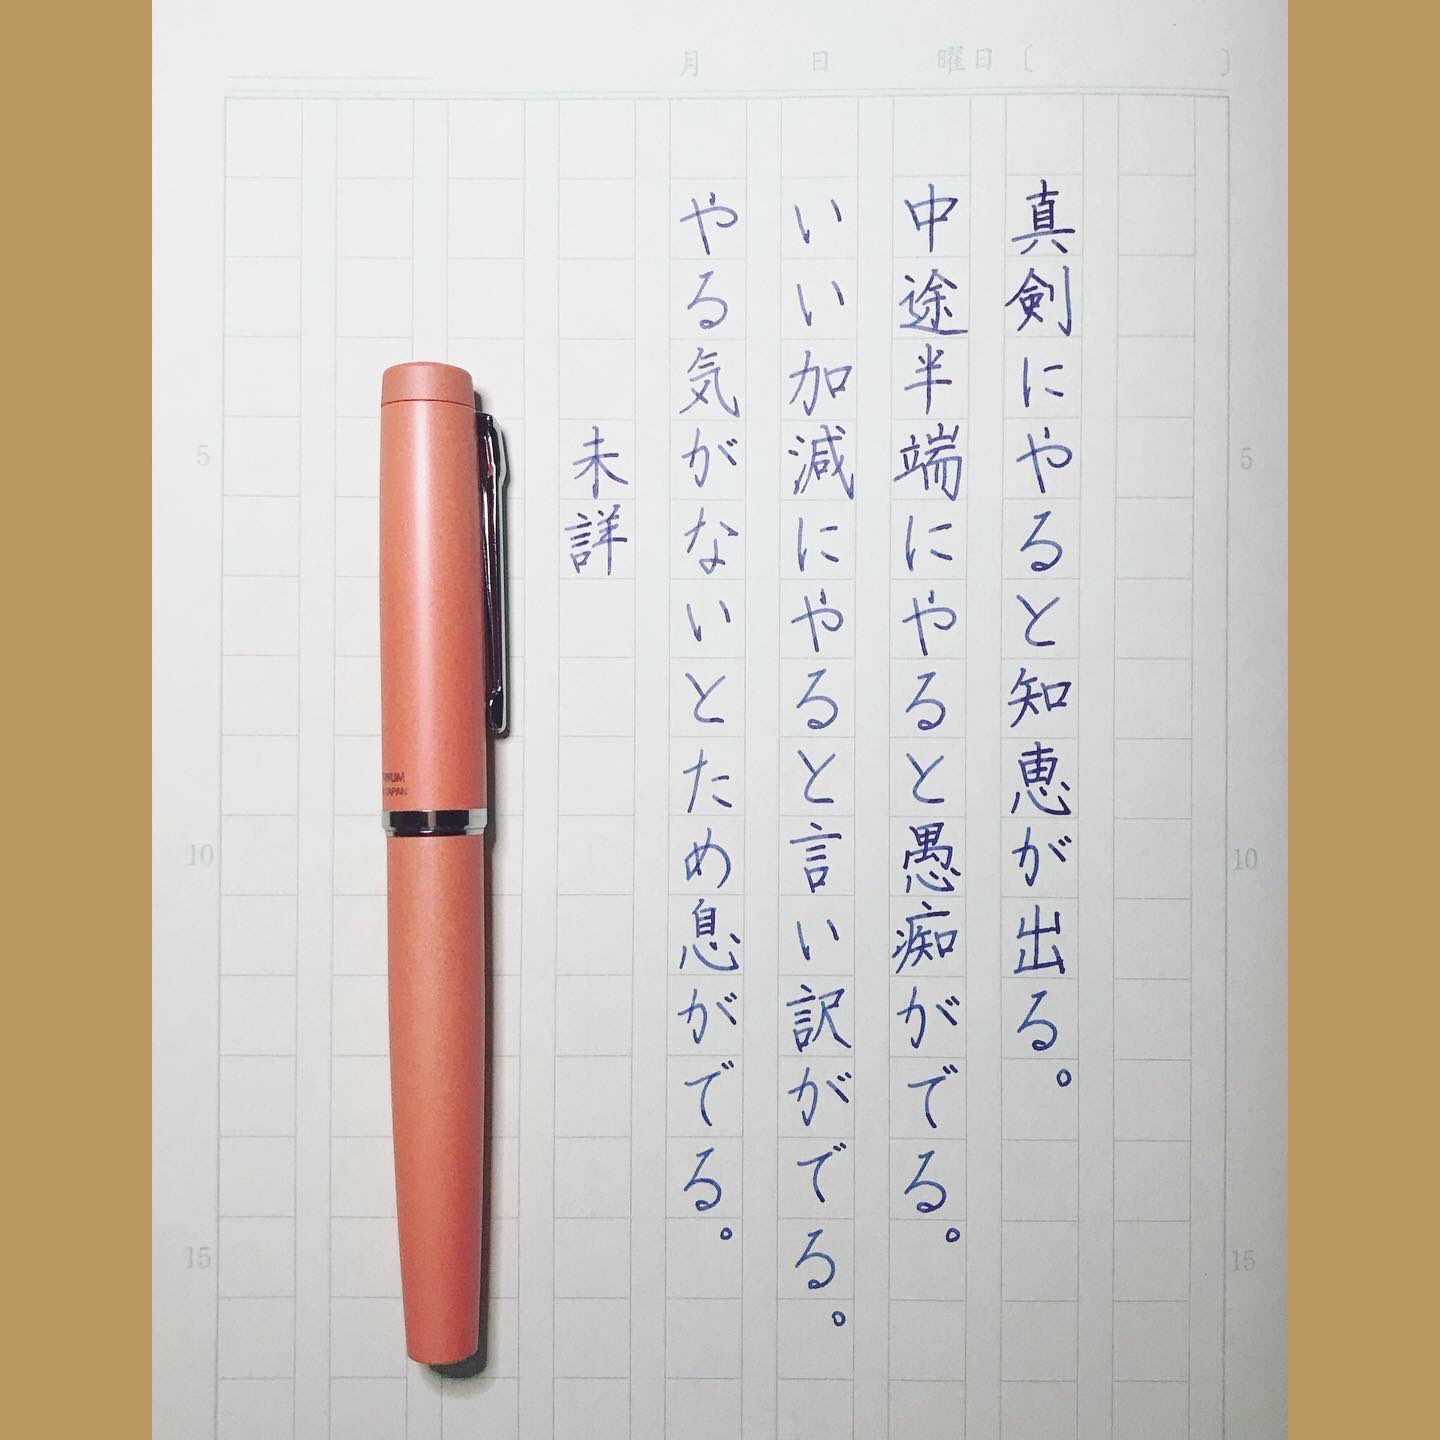 月 日 曜日〔 〕
真剣にやると知恵が出る。
中途半端にやると愚痴がでる。
いい加減にやると言い訳がでる。
やる気がないとため息がでる。
未詳
5
10
15
5
10
15
JAPAN